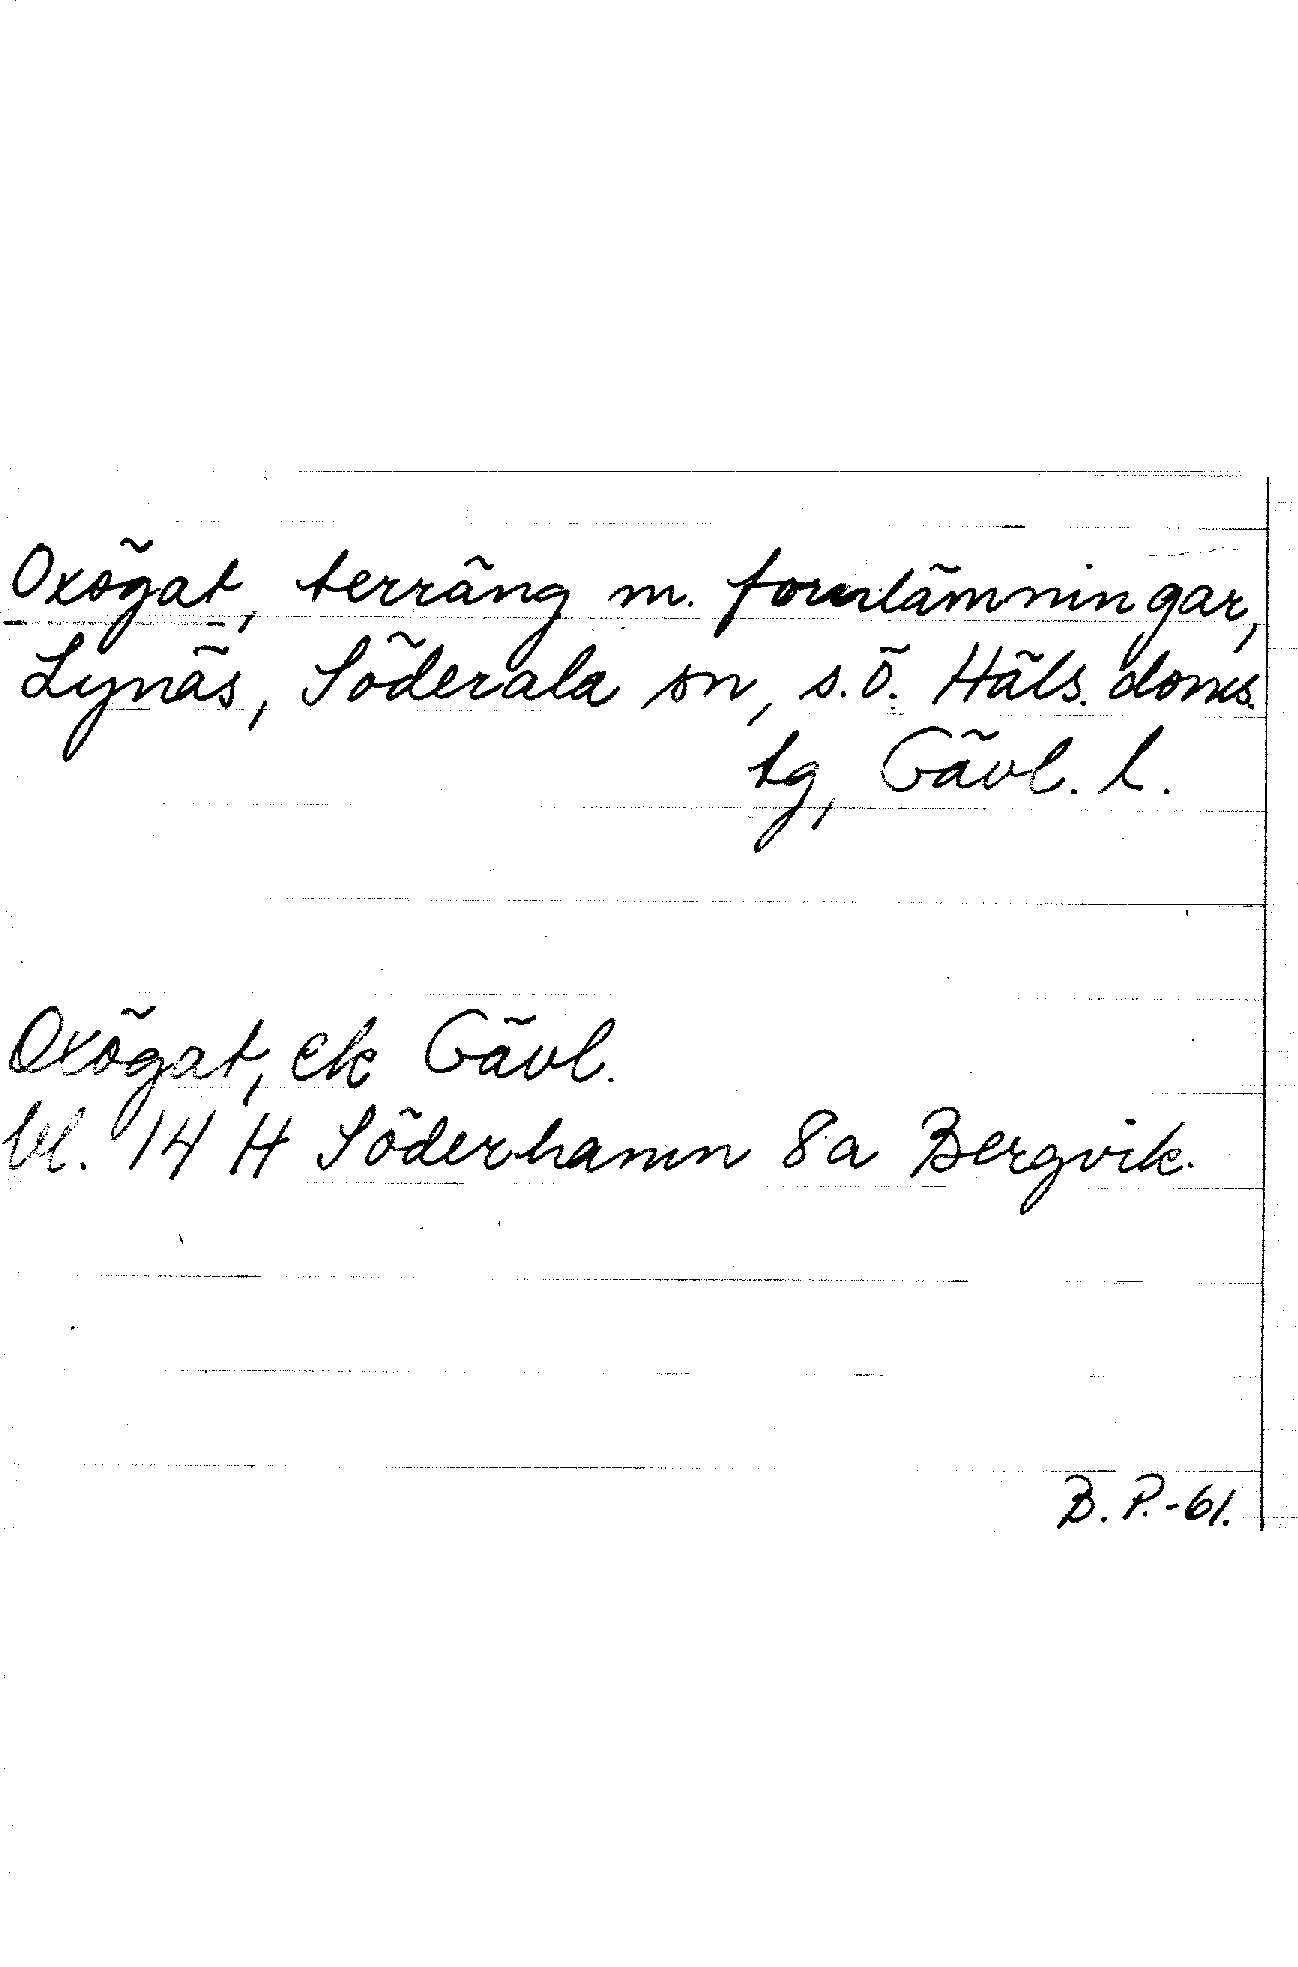 Oxögat, terräng m. fornlämningar,
Lynäs, Söderala sn, s.ö. Häls. doms.
tg, Gävl. l.
Oxögat, ek Gävl.
bl. 14 H Söderhamn 8a Bergvik.
B. P.-61.